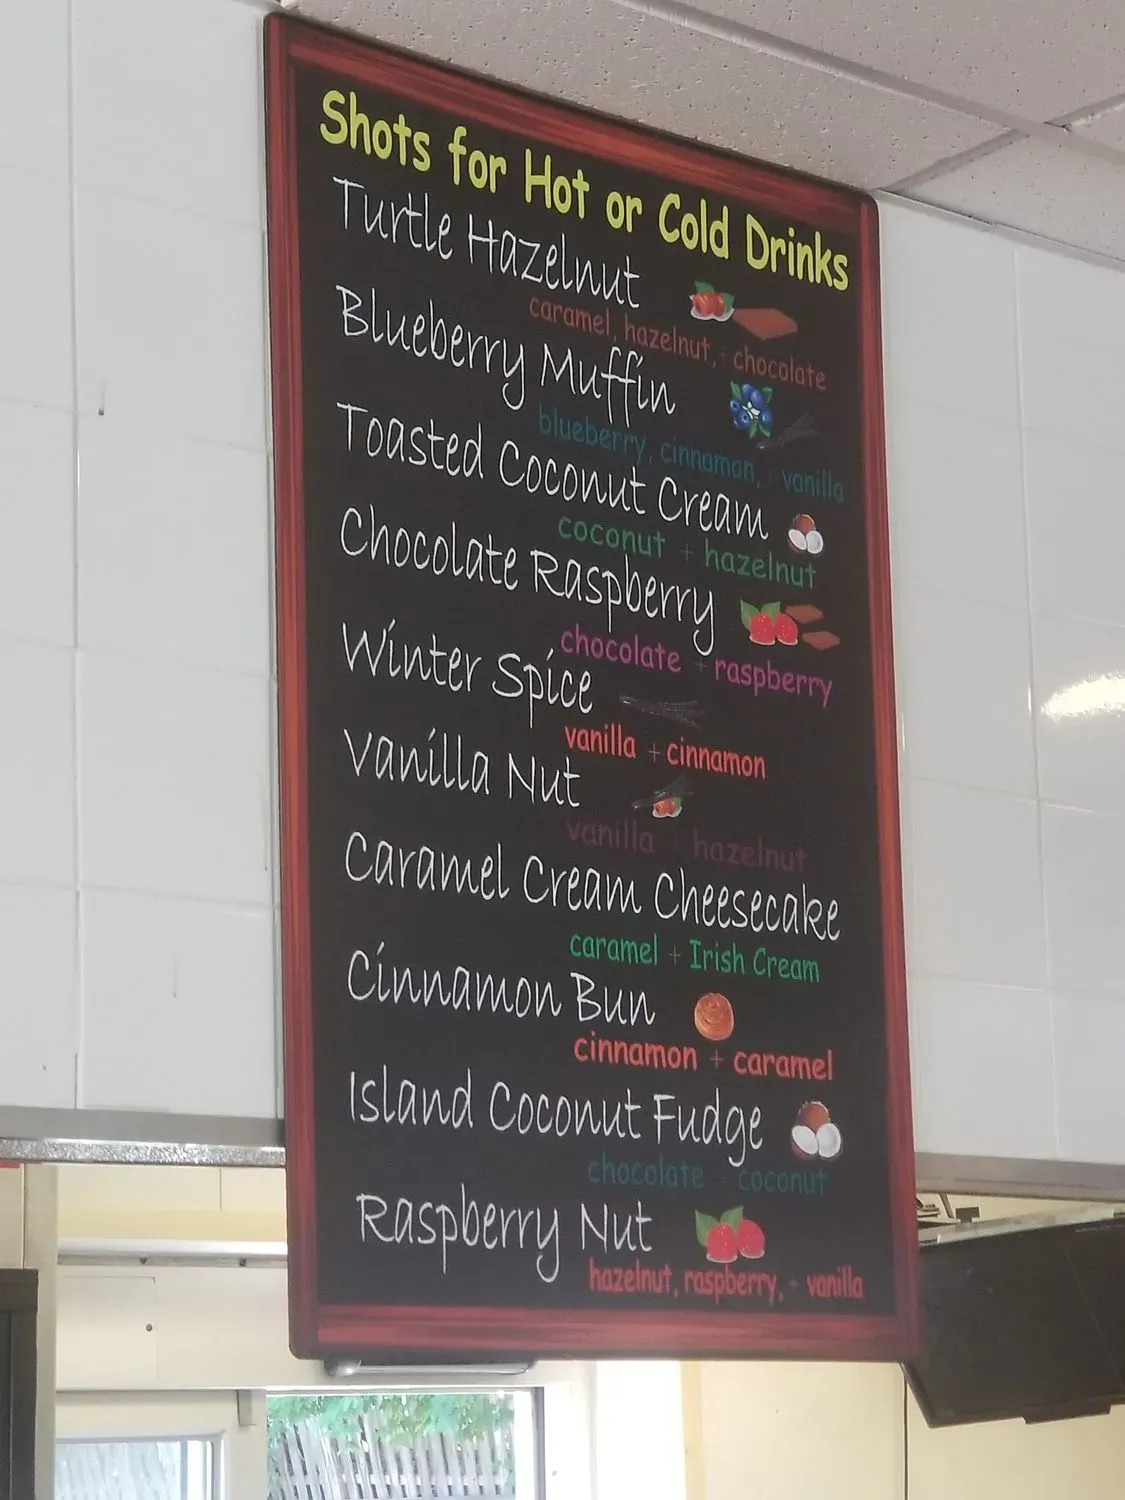 Shots for Hot or Cold Drinks
Turtle Hazelnut
caramel, hazelnut, + chocolate
Blueberry Muffin
blueberry, cinnamon, + vanilla
Toasted Coconut Cream
coconut + hazelnut
Chocolate Raspberry
chocolate + raspberry
Winter Spice
vanilla + cinnamon
Vanilla Nut
vanilla + hazelnut
Caramel Cream Cheesecake
caramel + Irish Cream
Cinnamon Bun
cinnamon + caramel
Island Coconut Fudge
chocolate + coconut
Raspberry Nut
hazelnut, raspberry, + vanilla